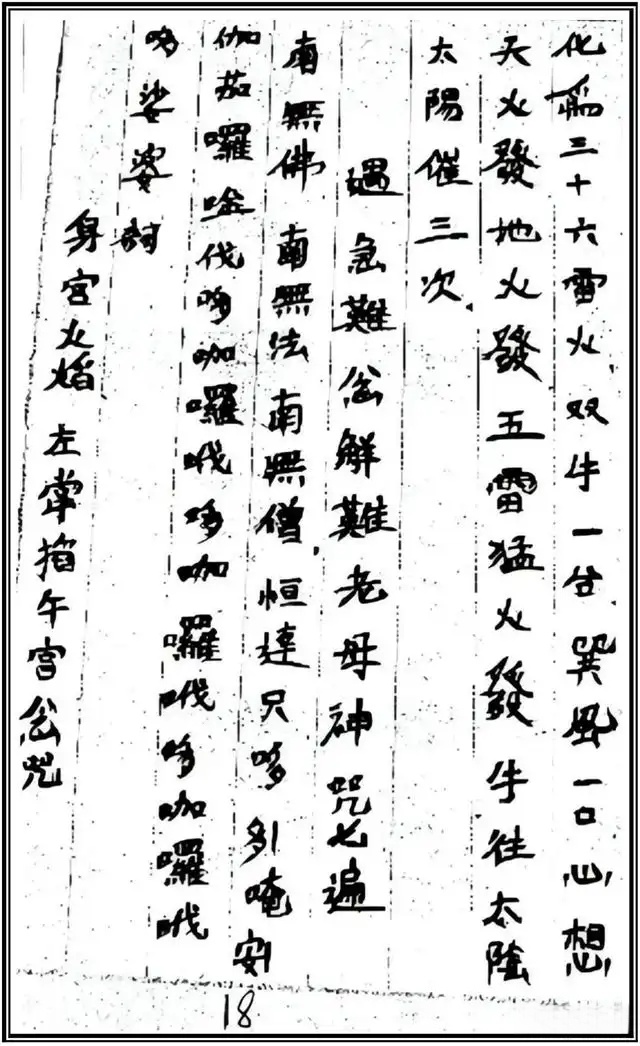 化為三十六雷火双牛一岔巽風一口心想
天火發地火發五雷猛火發牛往太陰
太陽催三次
遇急難岔解難老母神咒七遍
南無佛南無法南無僧恒達只哆多引唵安
伽茄囉唫伐哆咖囉哦哆咖囉哦哆咖囉哦
哆娑婆訶
身宮火焰左掌掐午宮岔咒
18